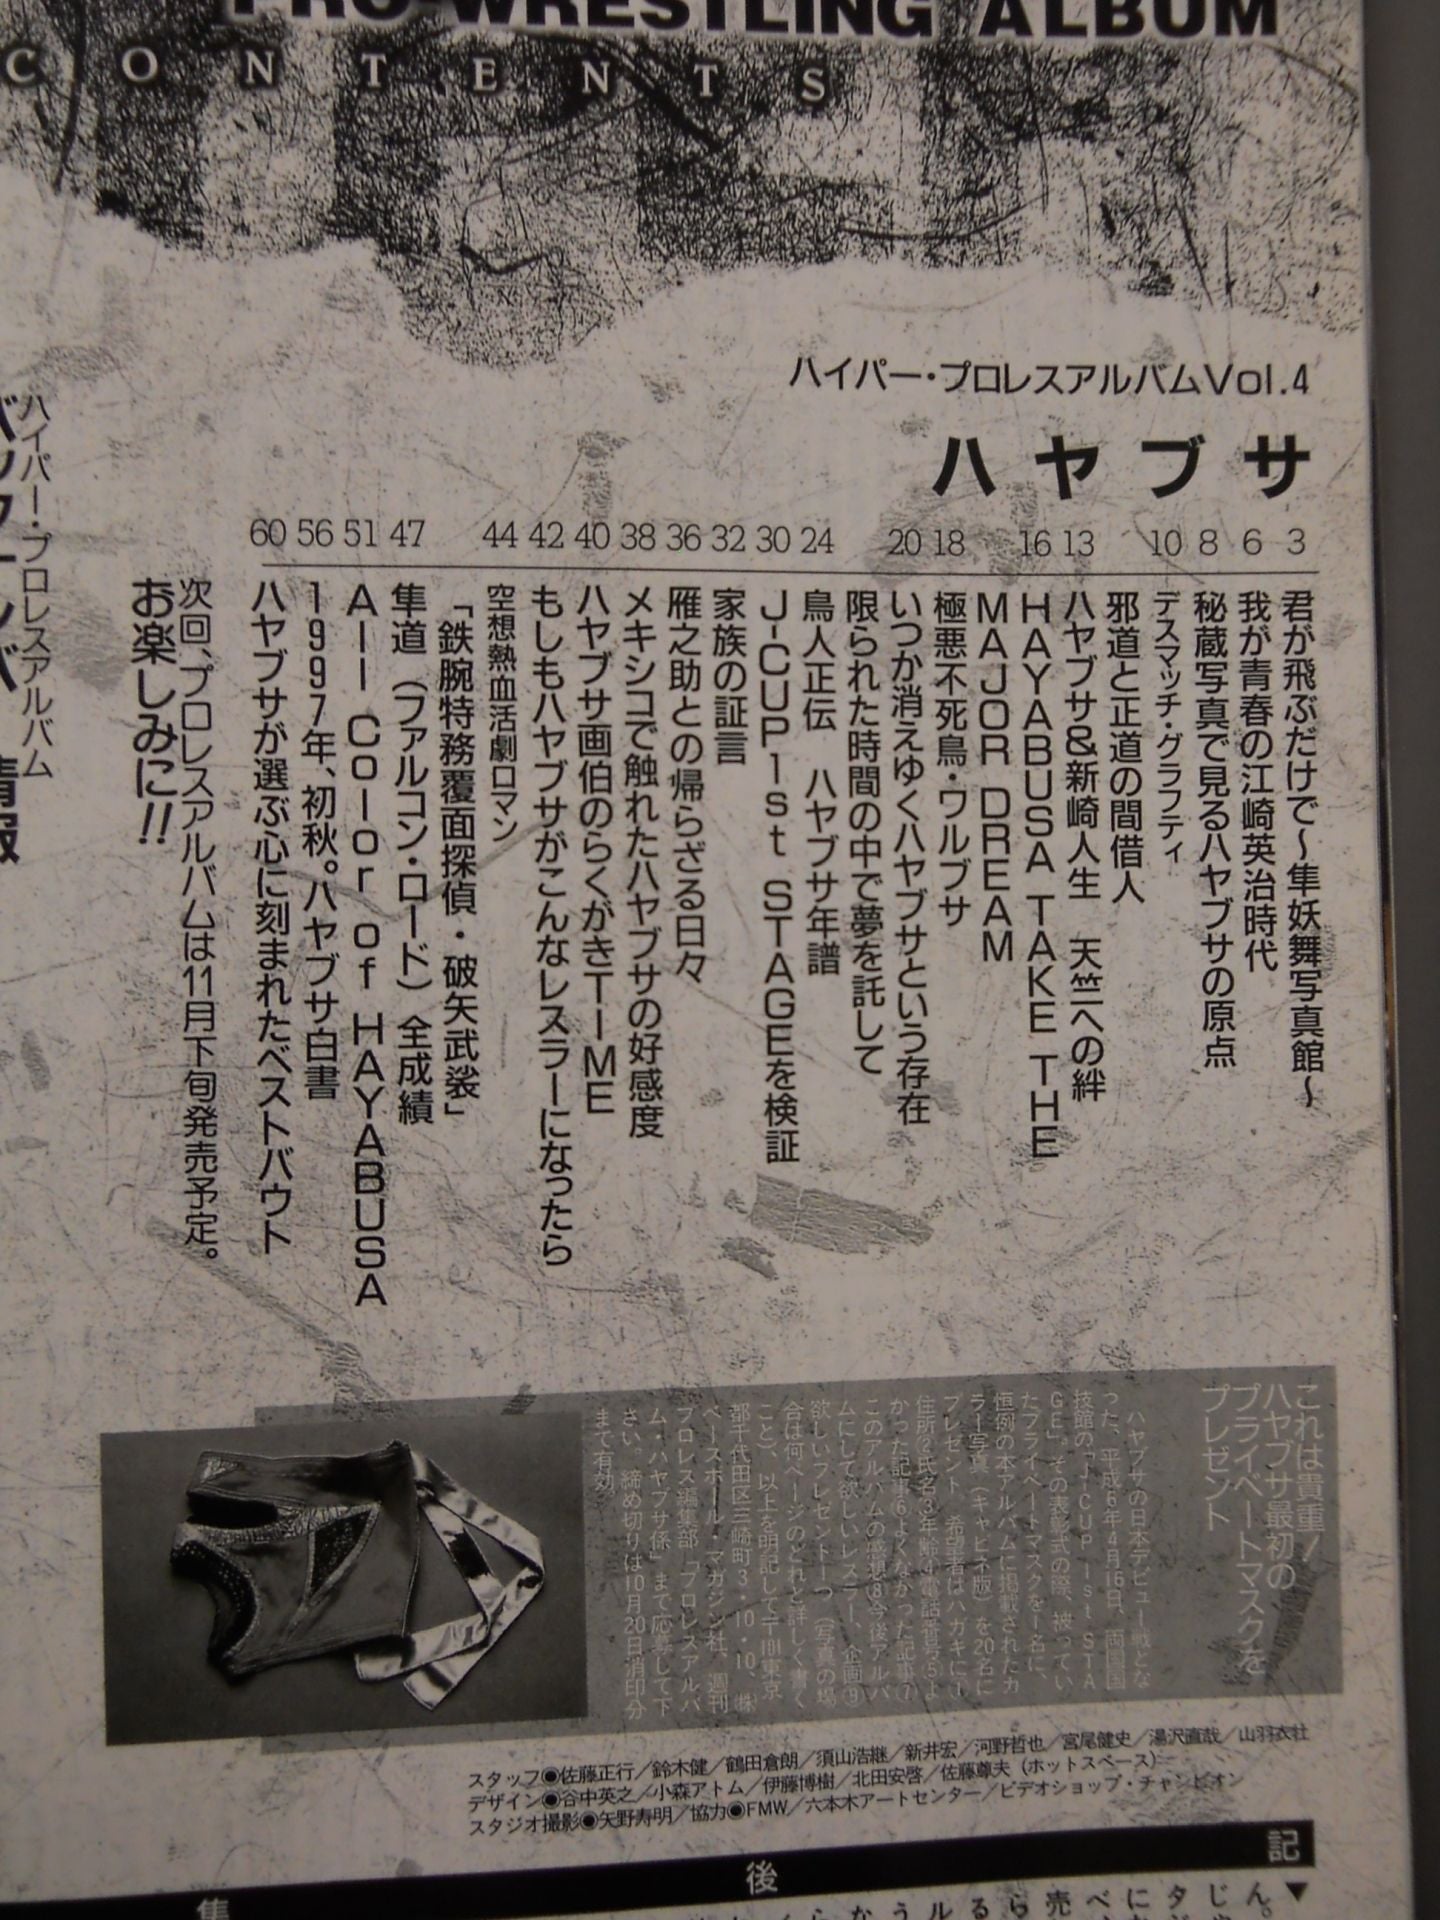 PRO-WRESTLING ALBUM
CONTENTS
ハイパー・プロレスアルバムVol.4
ハヤブサ
3 君が飛ぶだけで〜隼妖舞写真館〜
6 我が青春の江崎英治時代
8 秘蔵写真で見るハヤブサの原点
10 デスマッチ・グラフティ
邪道と正道の間借人
13 ハヤブサ&新崎人生 天竺への絆
16 HAYABUSA TAKE THE
MAJOR DREAM
18 極悪不死鳥・ワルブサ
20 いつか消えゆくハヤブサという存在
限られた時間の中で夢を託して
24 鳥人正伝 ハヤブサ年譜
30 J-CUP 1st STAGEを検証
32 家族の証言
36 雁之助との帰らざる日々
38 メキシコで触れたハヤブサの好感度
40 ハヤブサ画伯のらくがきTIME
42 もしもハヤブサがこんなレスラーになったら
44 空想熱血活劇ロマン
「鉄腕特務覆面探偵・破矢武裟」
47 隼道(ファルコン・ロード)全成績
51 All Color of HAYABUSA
56 1997年、初秋。ハヤブサ白書
60 ハヤブサが選ぶ心に刻まれたベストバウト
次回、プロレスアルバムは11月下旬発売予定。
お楽しみに!!
ハイパー・プロレスアルバム
これは貴重!
ハヤブサ最初の
プライベートマスクを
プレゼント
ハヤブサの日本デビュー戦とな
った、平成6年4月16日、両国国
技館の「J-CUP 1st STA
GE」。その表彰式の際、被ってい
たプライベートマスクを1名に、
恒例の本アルバムに掲載されたカ
ラー写真(キャビネ版)を20名に
プレゼント。希望者はハガキに①
住所②氏名③年齢④電話番号⑤よ
かった記事⑥よくなかった記事⑦
このアルバムの感想⑧今後アルバ
ムにして欲しいレスラー、企画⑨
欲しいプレゼント一つ(写真の場
合は何ページのどれと詳しく書く
こと)、以上を明記して〒101東京
都千代田区三崎町3・10・10、㈱
ベースボール・マガジン社、週刊
プロレス編集部「プロレスアルバ
ム・ハヤブサ係」まで応募して下
さい。締め切りは10月20日消印分
まで有効。
スタッフ◉佐藤正行/鈴木健/鶴田倉朗/須山浩継/新井宏/河野哲也/宮尾健史/湯沢直哉/山羽衣社
デザイン◉谷中英之/小森アトム/伊藤博樹/北田安啓/佐藤尊夫(ホットスペース)
スタジオ撮影◉矢野寿明/協力◉FMW/六本木アートセンター/ビデオショップ・チャンピオン
集 後 記